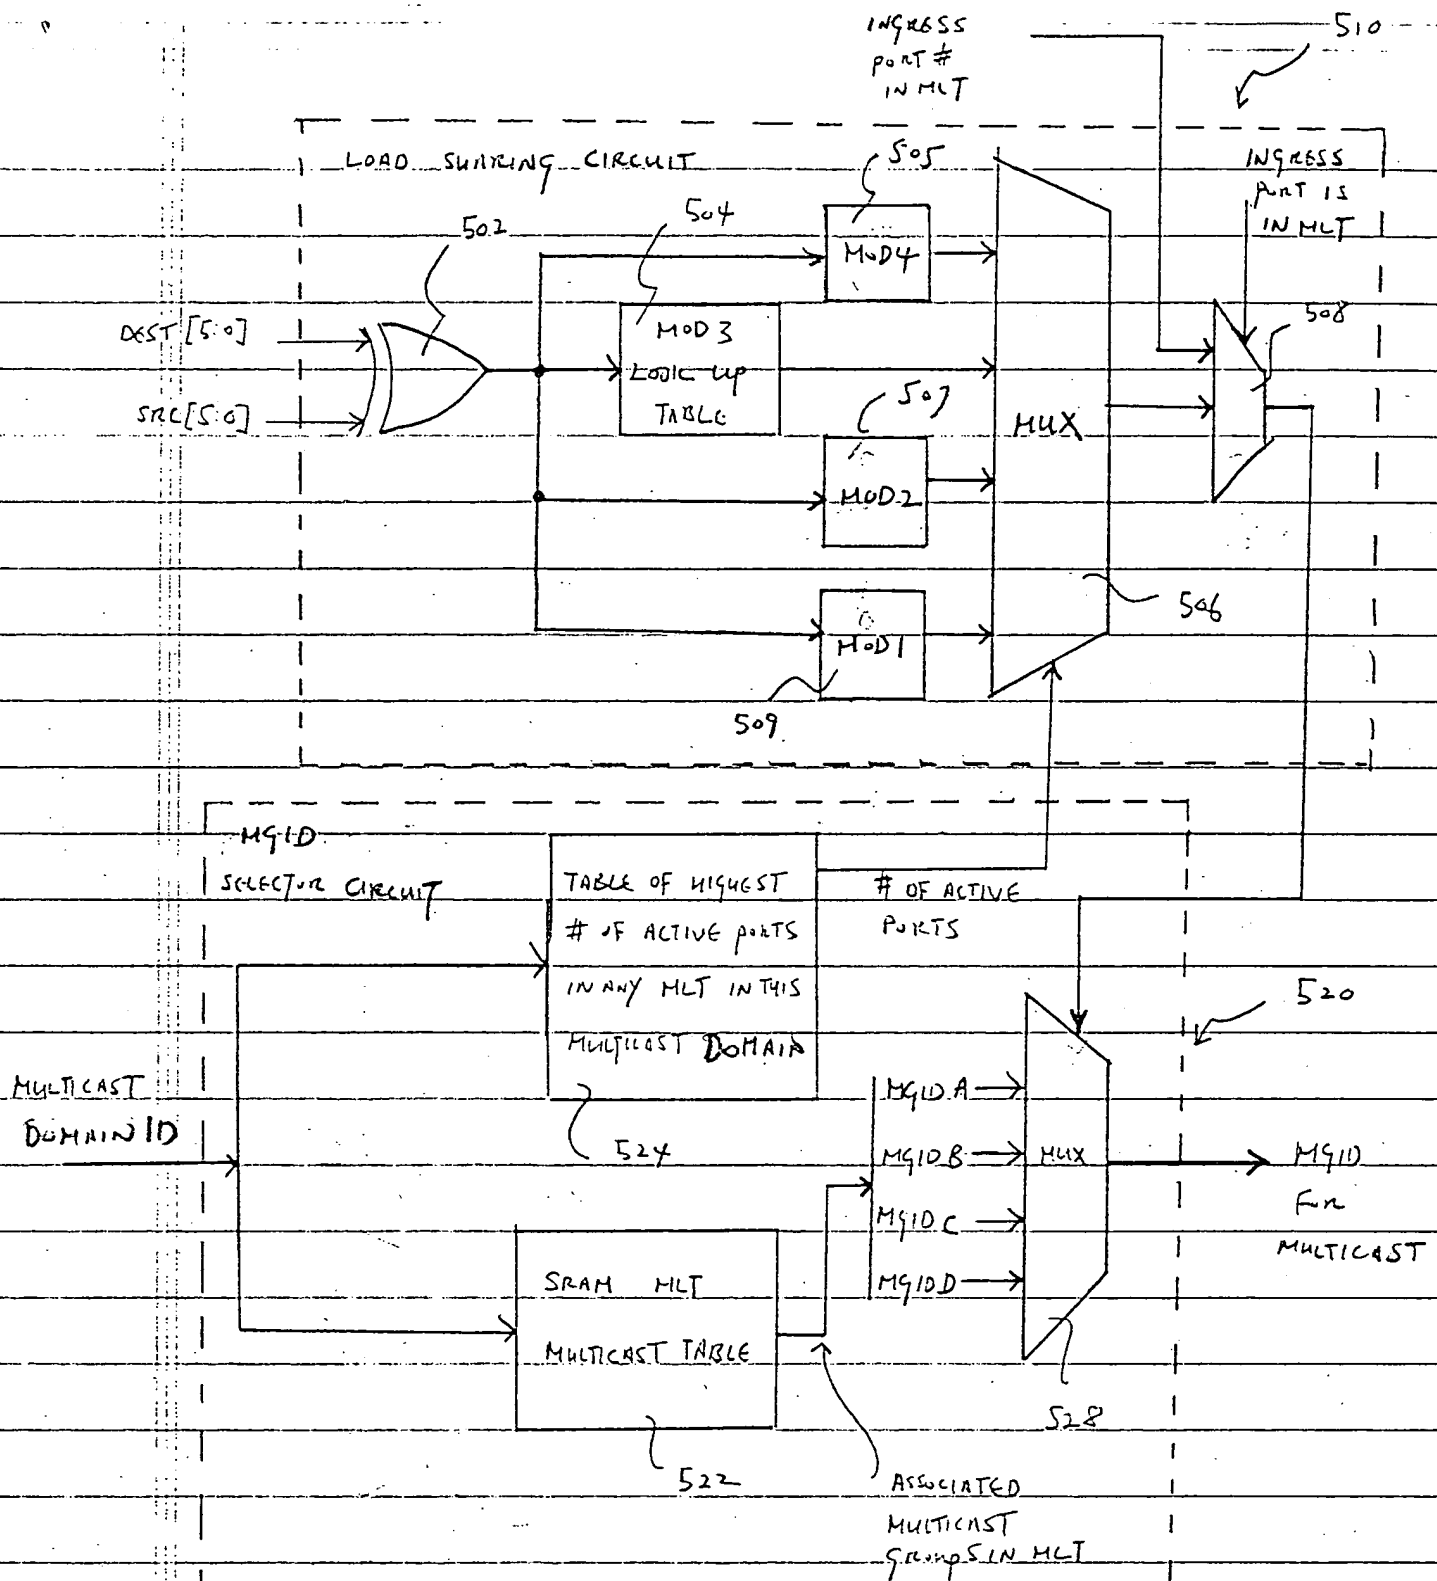 INGRESS
PORT #
IN MLT
510
LOAD SHARING CIRCUIT
505
INGRESS
PORT IS
IN MLT
504
502
MOD4
508
DEST [5:0]
MOD3
LOOK UP
TABLE
SRC[5:0]
507
MUX
MOD2
506
MOD1
509
MGID
SELECTOR CIRCUIT
TABLE OF HIGHEST
# OF ACTIVE PORTS
IN ANY MLT IN THIS
MULTICAST DOMAIN
# OF ACTIVE
PORTS
520
MULTICAST
DOMAIN ID
MGID A
524
MGID B
MUX
MGID
FOR
MULTICAST
MGID C
MGID D
SRAM MLT
MULTICAST TABLE
528
522
ASSOCIATED
MULTICAST
GROUPS IN MLT